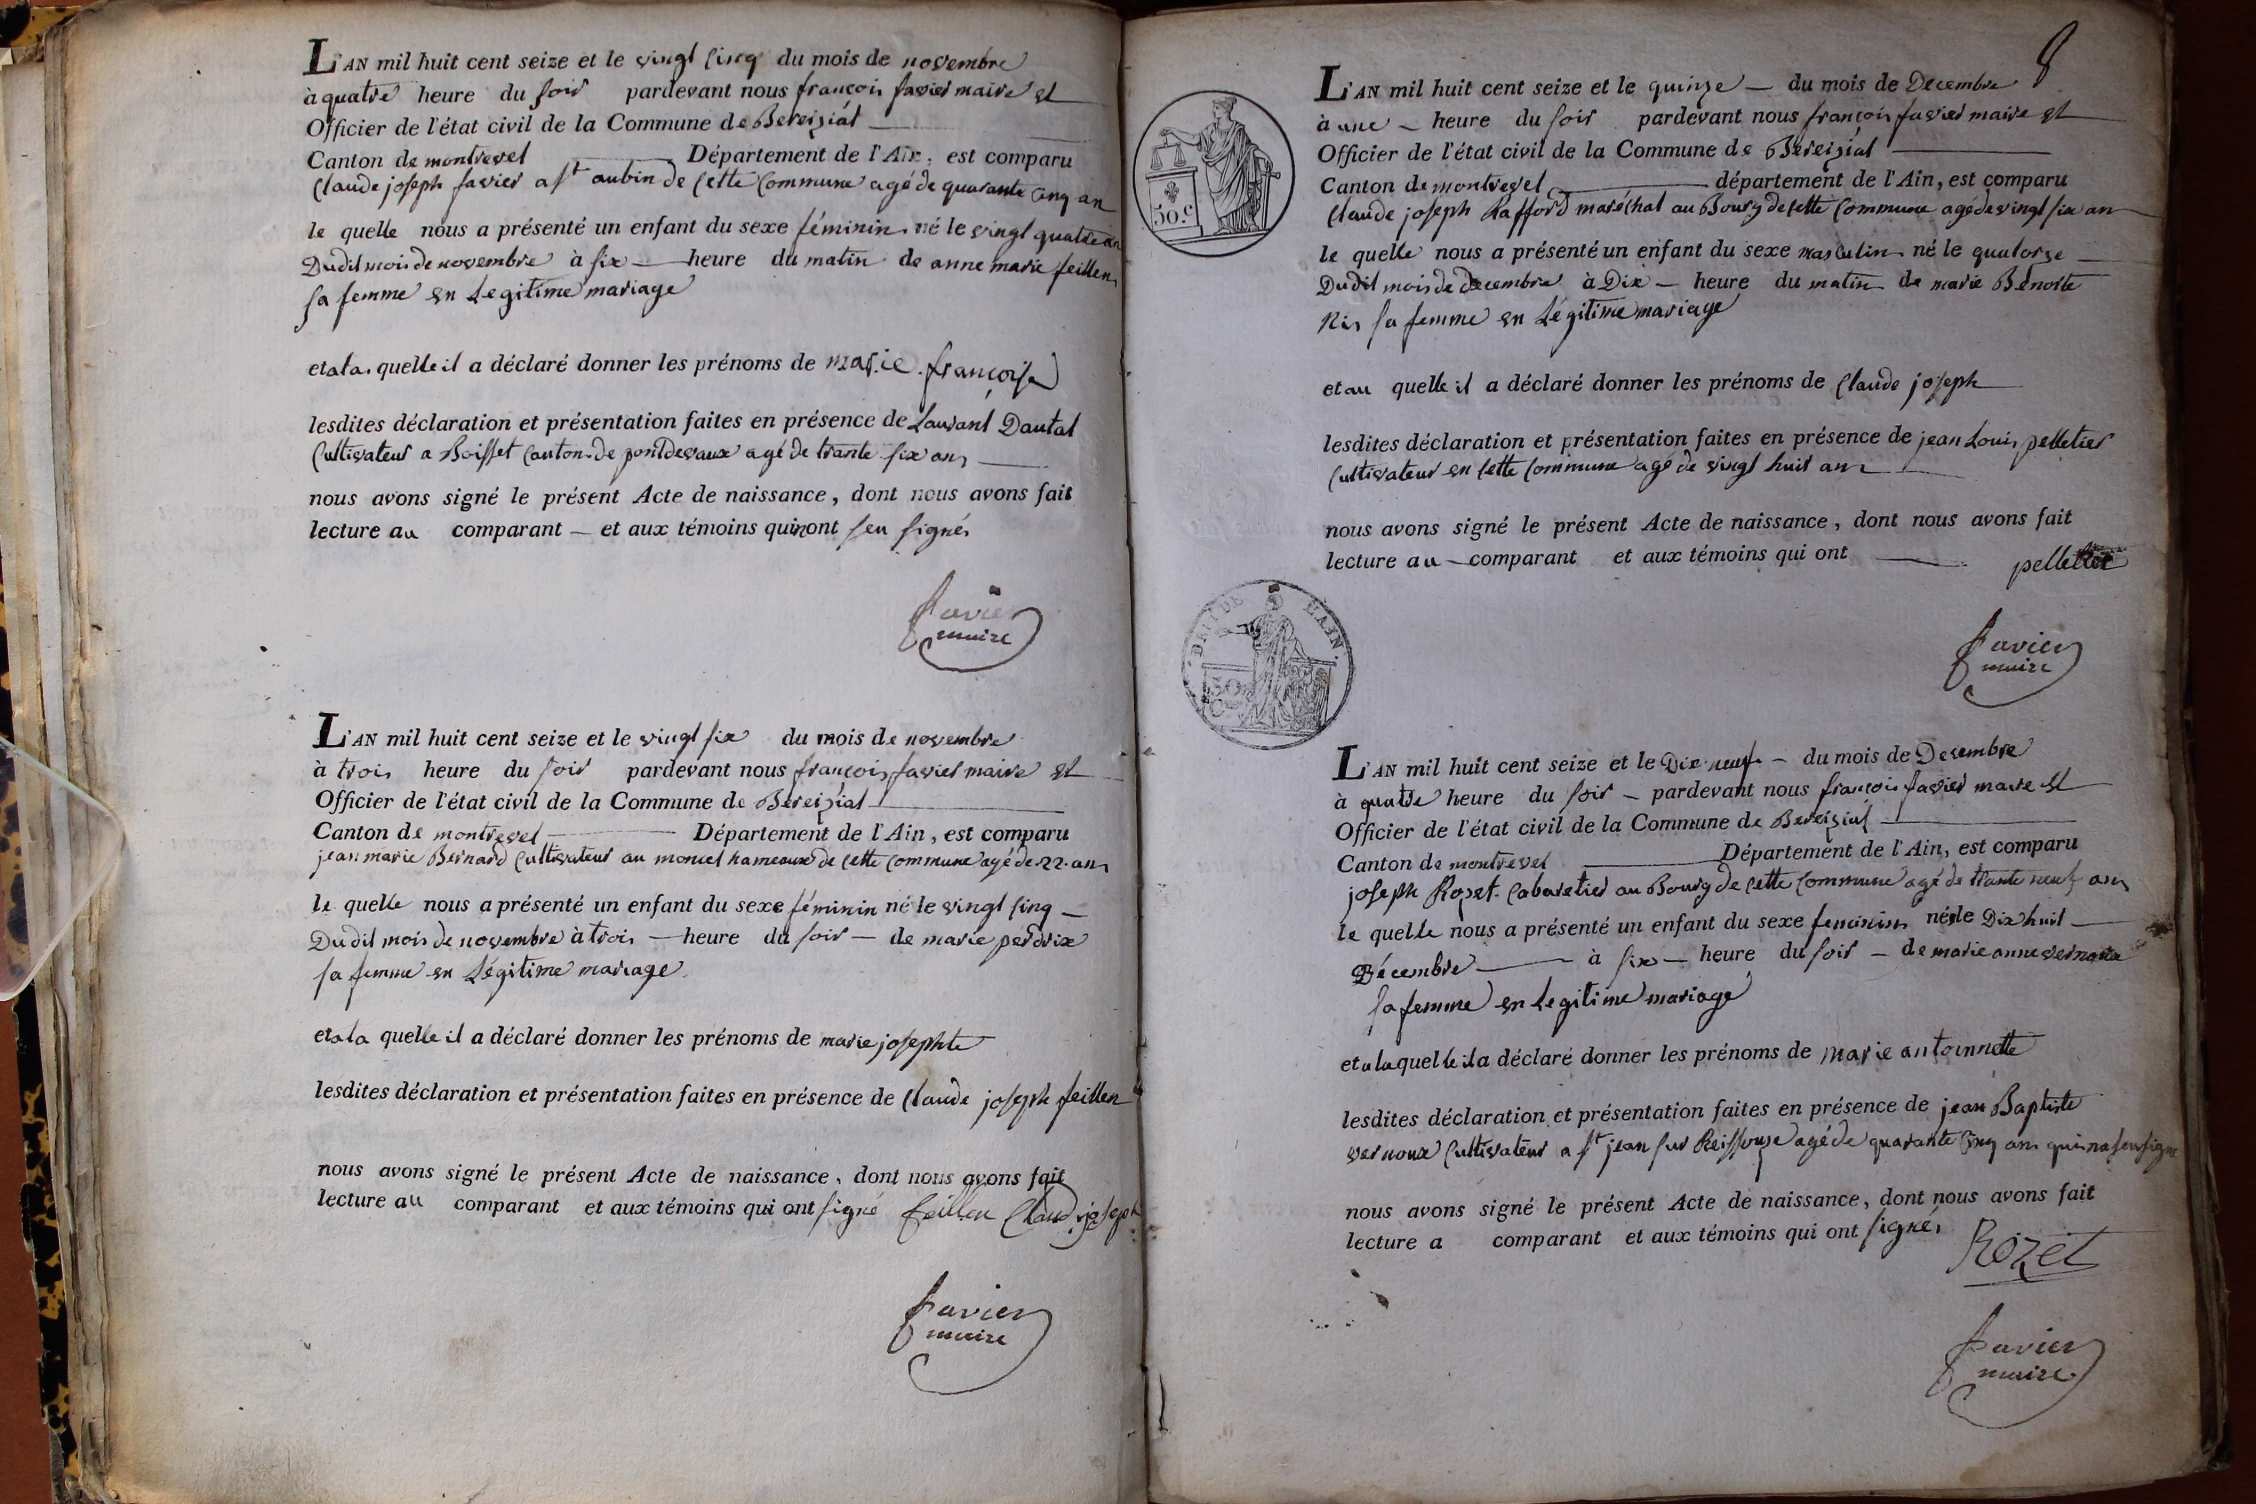 L'AN mil huit cent seize et le vingt cinq du mois de novembre
à quatre heure du soir pardevant nous françois favier maire et
Officier de l'état civil de la Commune de Bereiziat
Canton de montrevel Département de l'Ain, est comparu
Claude joseph favier a St aubin de cette commune agé de quarante cinq an
le quelle nous a présenté un enfant du sexe féminin né le vingt quatre
Dudit mois de novembre à six heure du matin de anne marie feillen
sa femme en Legitime mariage
et a la quelle il a déclaré donner les prénoms de marie françoise
lesdites déclaration et présentation faites en présence de Laurant Dautal
Cultivateur a Boisset Canton de pontdevaux agé de trante six ans
nous avons signé le présent Acte de naissance, dont nous avons fait
lecture au comparant et aux témoins qui nont seu signés
favier
maire
L'AN mil huit cent seize et le vingt six du mois de novembre
à trois heure du soir pardevant nous françois favier maire et
Officier de l'état civil de la Commune de Béreiziat
Canton de montrevel Département de l'Ain, est comparu
jean marie Bernard Cultivateur au moncel hameaux de cette commune agé de 22 ans
le quelle nous a présenté un enfant du sexe féminin né le vingt cinq
Dudit mois de novembre à trois heure du soir de marie perdrix
sa femme en Légitime mariage
et a la quelle il a déclaré donner les prénoms de marie josephte
lesdites déclaration et présentation faites en présence de Claude joseph feillen
nous avons signé le présent Acte de naissance, dont nous avons fait
lecture au comparant et aux témoins qui ont signé feillen Claud joseph
favier
maire
8
L'AN mil huit cent seize et le quinze du mois de Decembre
à une heure du soir pardevant nous françois favier maire et
Officier de l'état civil de la Commune de Béreiziat
Canton de montrevel département de l'Ain, est comparu
Claude joseph Rafford maréchal au Bourg de cette commune agé de vingt six an
le quelle nous a présenté un enfant du sexe masculin né le quatorze
Dudit mois de decembre à Dix heure du matin de marie Benoite
Nis sa femme en Légitime mariage
et au quelle il a déclaré donner les prénoms de Claude joseph
lesdites déclaration et présentation faites en présence de jean Louis pelletier
Cultivateur en cette commune agé de vingt huit ans
nous avons signé le présent Acte de naissance, dont nous avons fait
lecture au comparant et aux témoins qui ont
pelletier
favier
maire
50.c
DEPT DE L'AIN
50
L'AN mil huit cent seize et le Dix neuf du mois de Decembre
à quatre heure du soir pardevant nous françois favier maire et
Officier de l'état civil de la Commune de Bereiziat
Canton de montrevel Département de l'Ain, est comparu
joseph Rozet Cabaretier au Bourg de cette commune agé de trante neuf ans
le quelle nous a présenté un enfant du sexe feminin née le Dix huit
Décembre à six heure du soir de marie anne vernoux
sa femme en Legitime mariage
et a la quelle il a déclaré donner les prénoms de marie antoinnette
lesdites déclaration et présentation faites en présence de jean Baptiste
vernoux Cultivateur a St jean sur Reissouze agé de quarante cinq ans qui na seu signe
nous avons signé le présent Acte de naissance, dont nous avons fait
lecture a comparant et aux témoins qui ont signés
Rozet
favier
maire